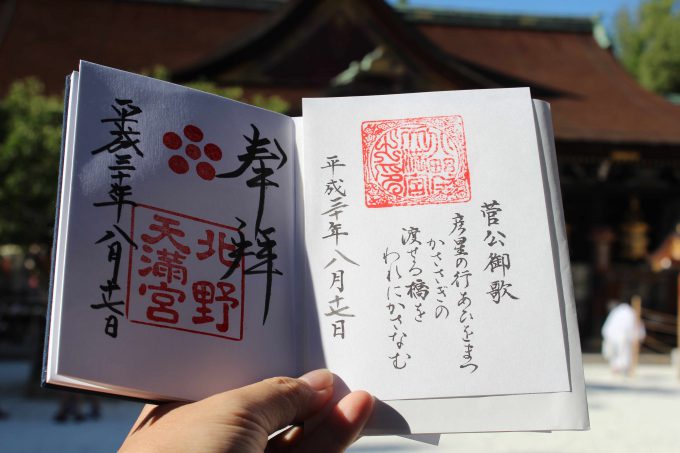 菅公御歌
彦星の行あひをまつ
かささぎの
渡せる橋を
われにかさなむ
平成三十年八月十七日
奉拝
北野
天満宮
平成三十年八月十七日